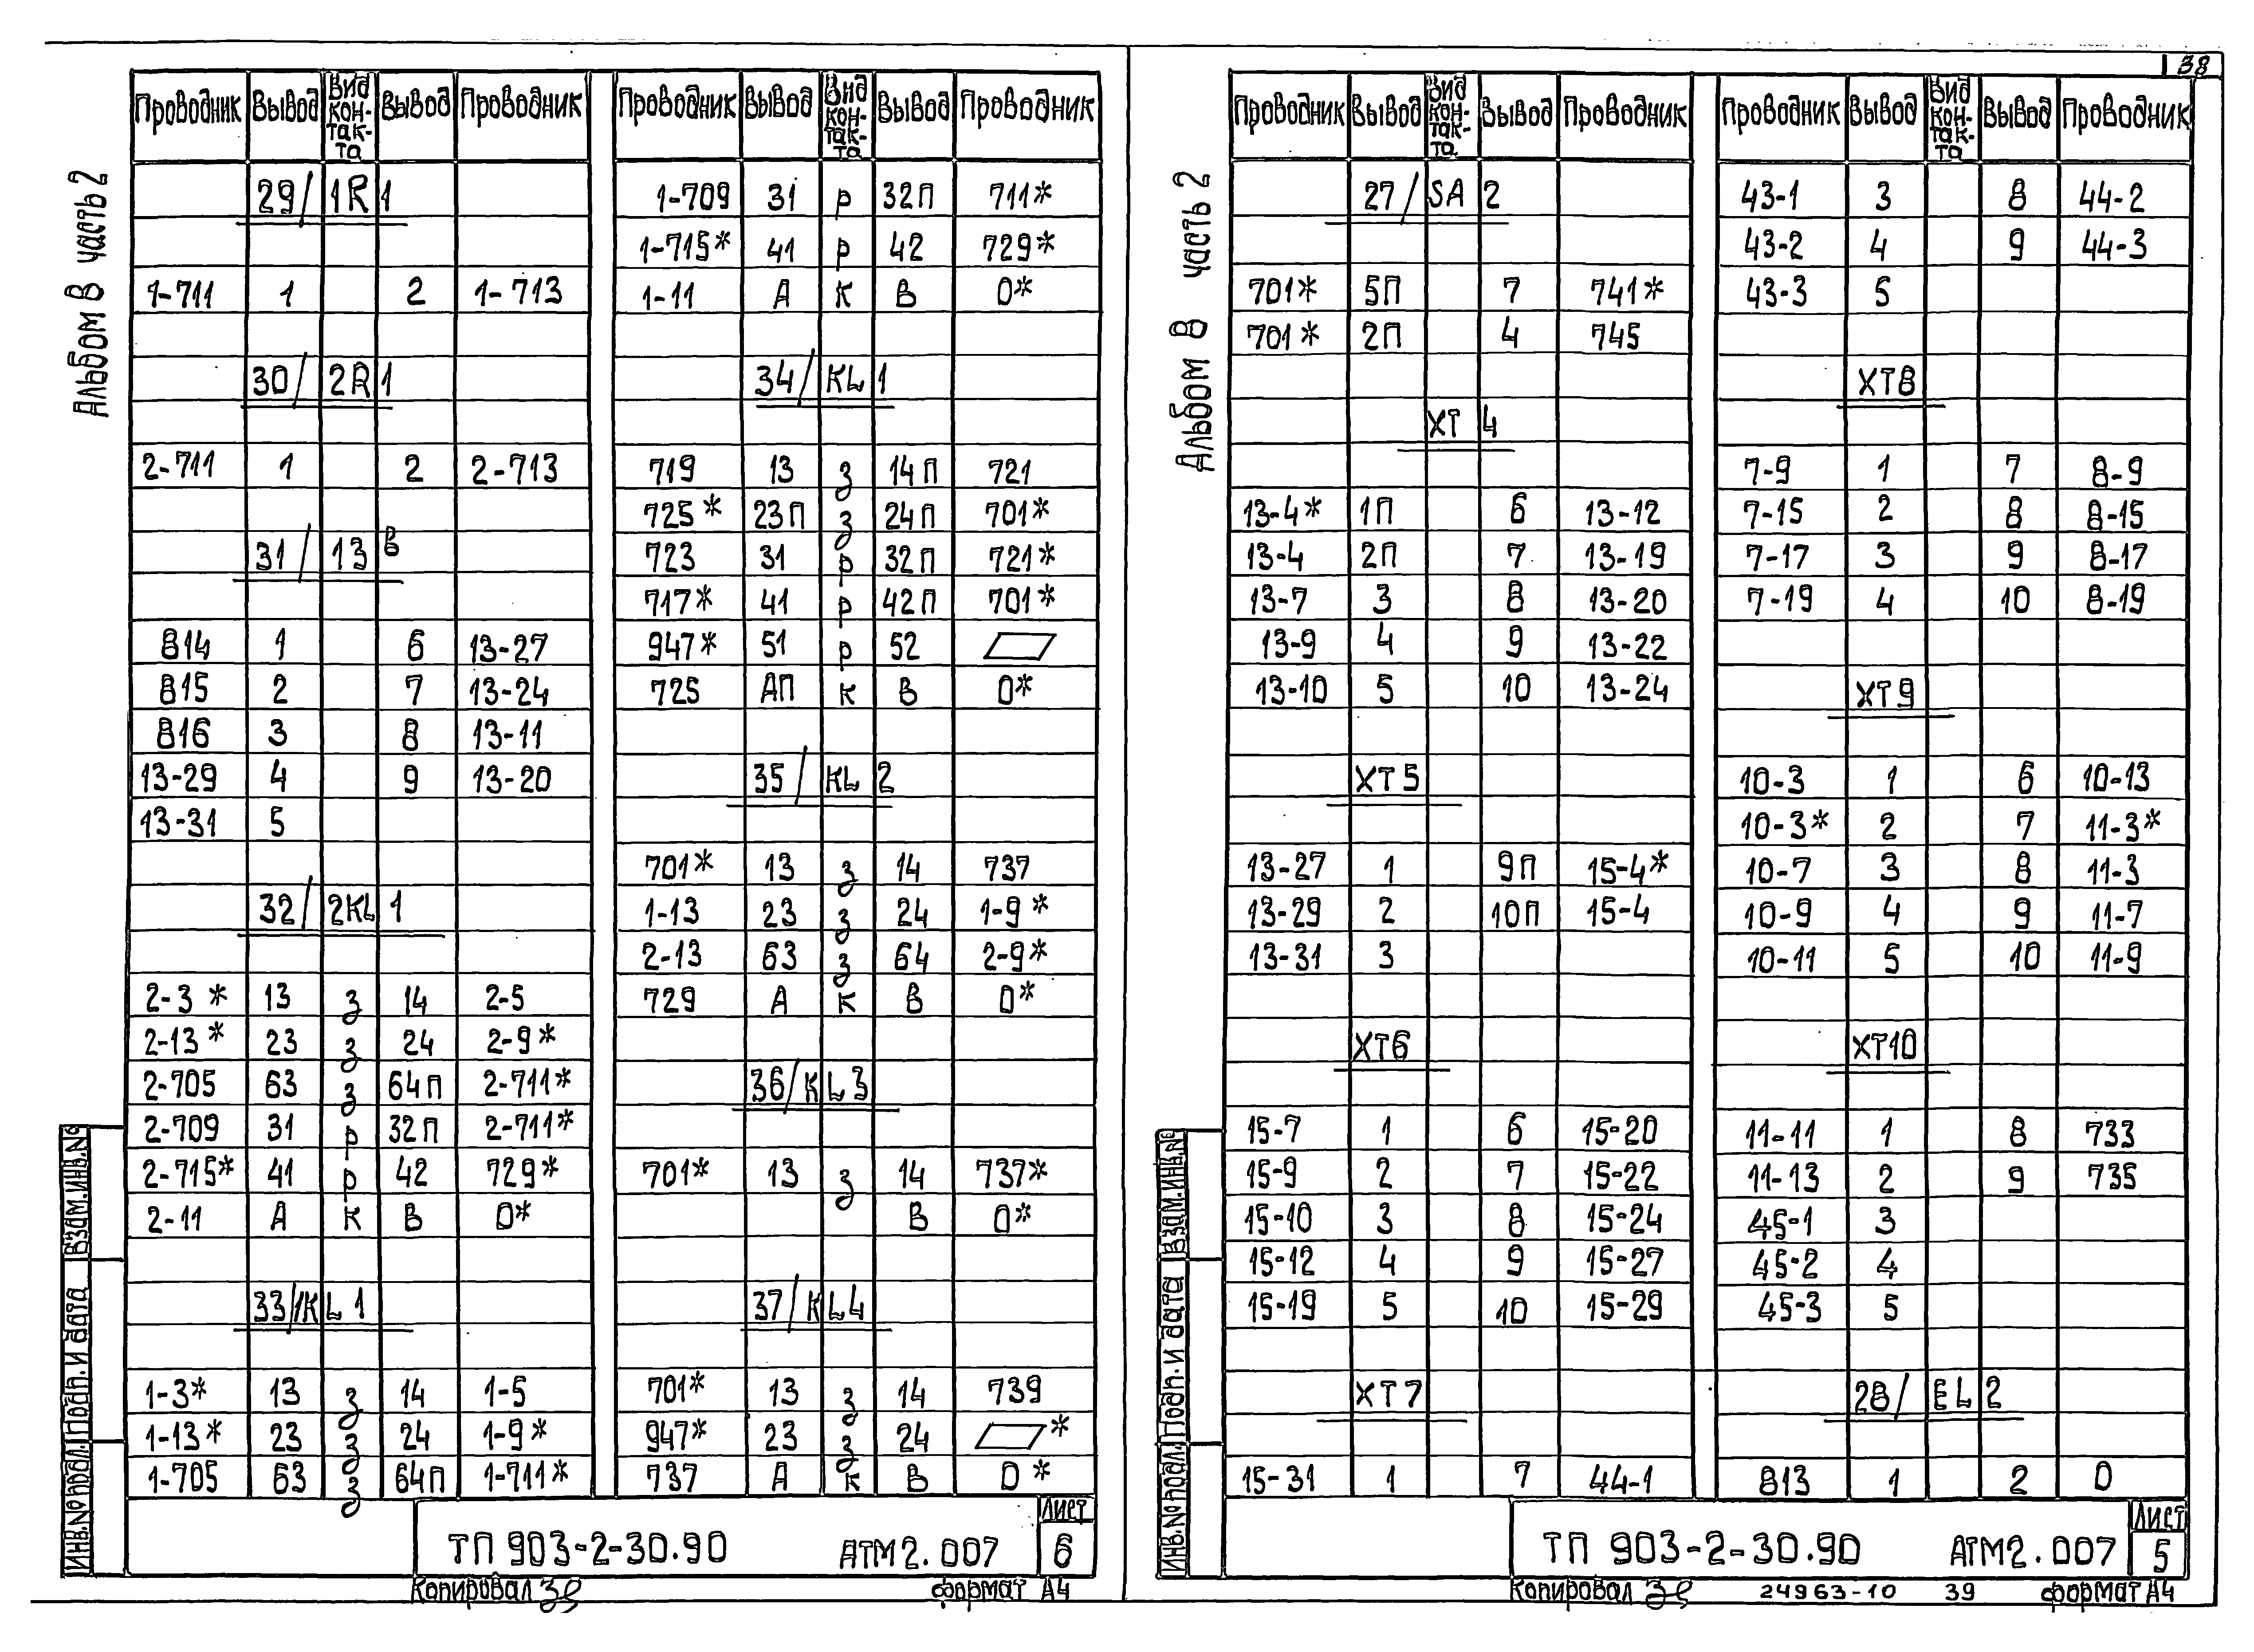 38
Альбом В часть 2
Проводник Вывод Вид контакта Вывод Проводник
29/1R1
1-711 1 2 1-713
30/2R1
2-711 1 2 2-713
31/13В
814 1 6 13-27
815 2 7 13-24
816 3 8 13-11
13-29 4 9 13-20
13-31 5
32/2KL1
2-3* 13 з 14 2-5
2-13* 23 з 24 2-9*
2-705 63 з 64П 2-711*
2-709 31 р 32П 2-711*
2-715* 41 р 42 729*
2-11 А к В 0*
33/1KL1
1-3* 13 з 14 1-5
1-13* 23 з 24 1-9*
1-705 63 з 64П 1-711*
Проводник Вывод Вид контакта Вывод Проводник
1-709 31 р 32П 711*
1-715* 41 р 42 729*
1-11 А к В 0*
34/KL1
719 13 з 14П 721
725* 23П з 24П 701*
723 31 р 32П 721*
717* 41 р 42П 701*
947* 51 р 52
725 АП к В 0*
35/KL2
701* 13 з 14 737
1-13 23 з 24 1-9*
2-13 63 з 64 2-9*
729 А к В 0*
36/KL3
701* 13 з 14 737*
В 0*
37/KL4
701* 13 з 14 739
947* 23 з 24 *
737 А к В 0*
Взам.инв.№
Подп. и дата
Инв.№ подл.
ТП 903-2-30.90 АТМ2.007 Лист 6
Копировал формат А4
Альбом В часть 2
Проводник Вывод Вид контакта Вывод Проводник
27/SA2
701* 5П 7 741*
701* 2П 4 745
XT4
13-4* 1П 6 13-12
13-4 2П 7 13-19
13-7 3 8 13-20
13-9 4 9 13-22
13-10 5 10 13-24
XT5
13-27 1 9П 15-4*
13-29 2 10П 15-4
13-31 3
XT6
15-7 1 6 15-20
15-9 2 7 15-22
15-10 3 8 15-24
15-12 4 9 15-27
15-19 5 10 15-29
XT7
15-31 1 7 44-1
Проводник Вывод Вид контакта Вывод Проводник
43-1 3 8 44-2
43-2 4 9 44-3
43-3 5
XT8
7-9 1 7 8-9
7-15 2 8 8-15
7-17 3 9 8-17
7-19 4 10 8-19
XT9
10-3 1 6 10-13
10-3* 2 7 11-3*
10-7 3 8 11-3
10-9 4 9 11-7
10-11 5 10 11-9
XT10
11-11 1 8 733
11-13 2 9 735
45-1 3
45-2 4
45-3 5
28/EL2
813 1 2 0
Взам.инв.№
Подп. и дата
Инв.№ подл.
ТП 903-2-30.90 АТМ2.007 Лист 5
Копировал 24963-10 39 формат А4